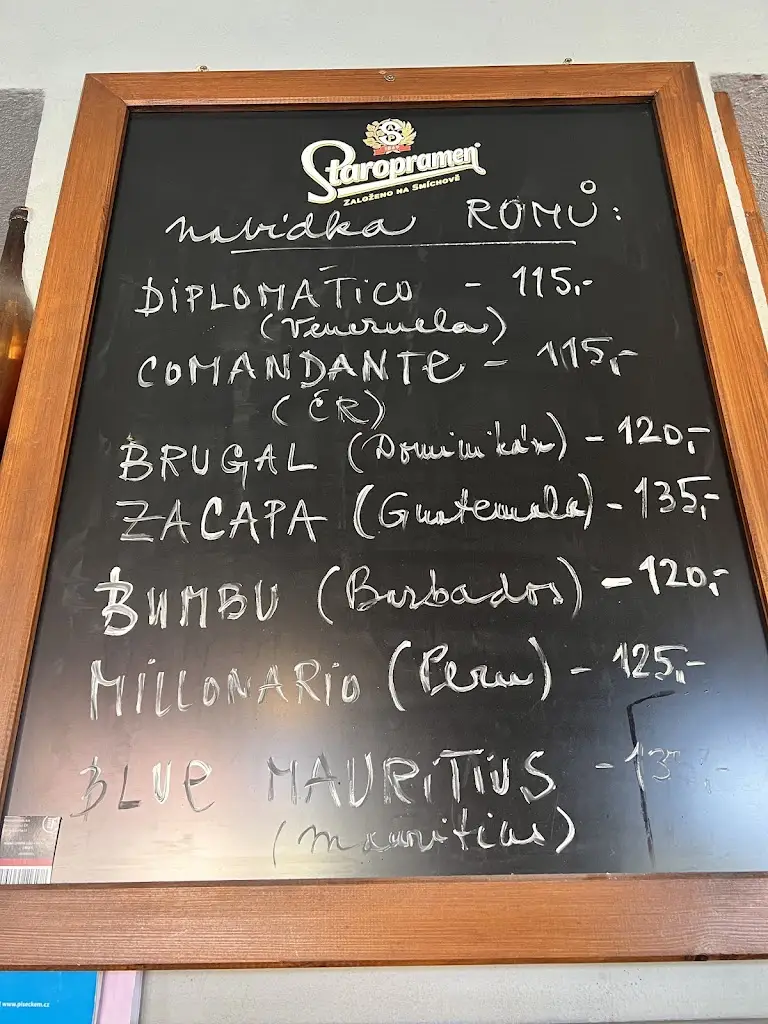 Staropramen
ZALOŽENO NA SMÍCHOVĚ
nabídka ROMŮ:
DIPLOMATICO - 115,-
(Venezuela)
COMANDANTE - 115,-
(ČR)
BRUGAL (Dominikán) - 120,-
ZACAPA (Guatemala) - 135,-
BUMBU (Barbados) - 120,-
MILLONARIO (Peru) - 125,-
BLUE MAURITIUS
(Mauritius)
www.piseckem.cz